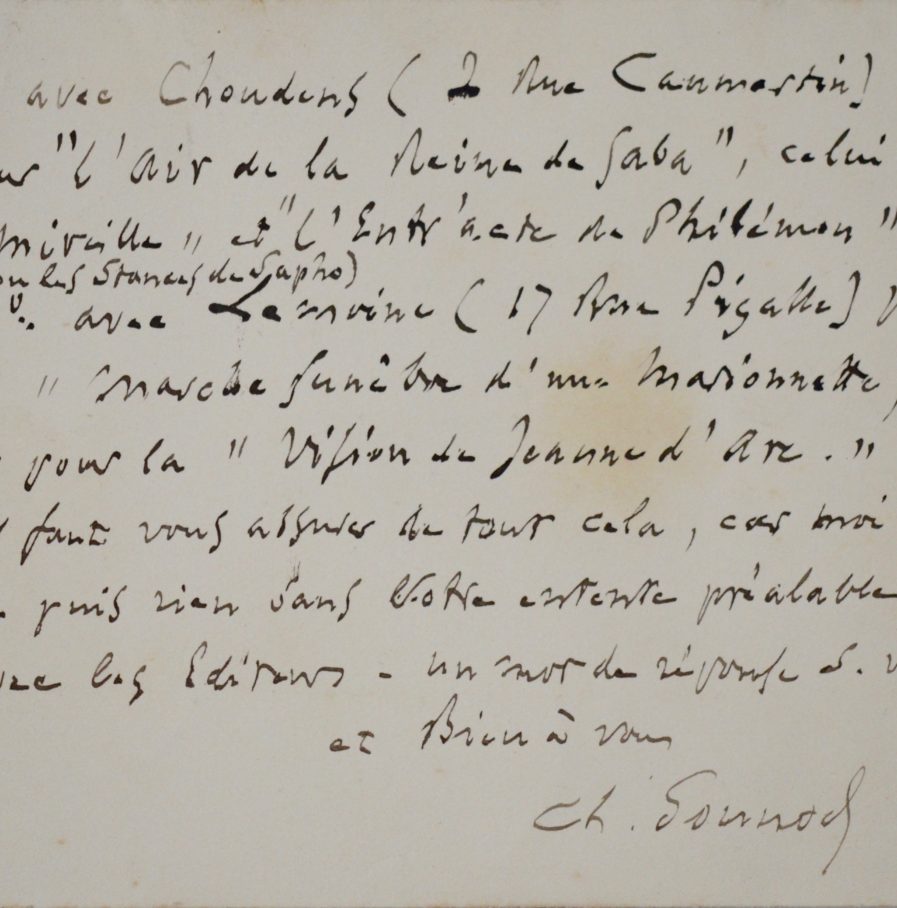 avec Choudens ( 2 Rue Caumartin )
"l'Air de la Reine de Saba", celui
Mireille „ et "l'Entr'acte de Philémon"
ou les Stances de Sapho)
avec Lemoine ( 17 Rue Pigalle )
" Marche funèbre d'une Marionnette
pour la " Vision de Jeanne d'Arc . "
faut vous assurer de tout cela, car moi
puis rien sans Votre entente préalable
les Editeurs - un mot de réponse S. v
et Bien à vous
Ch. Gounod